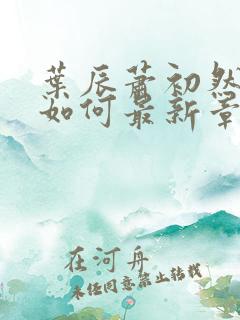 葉辰蕭初然
如何最新章
在河舟
未经同意禁止转载